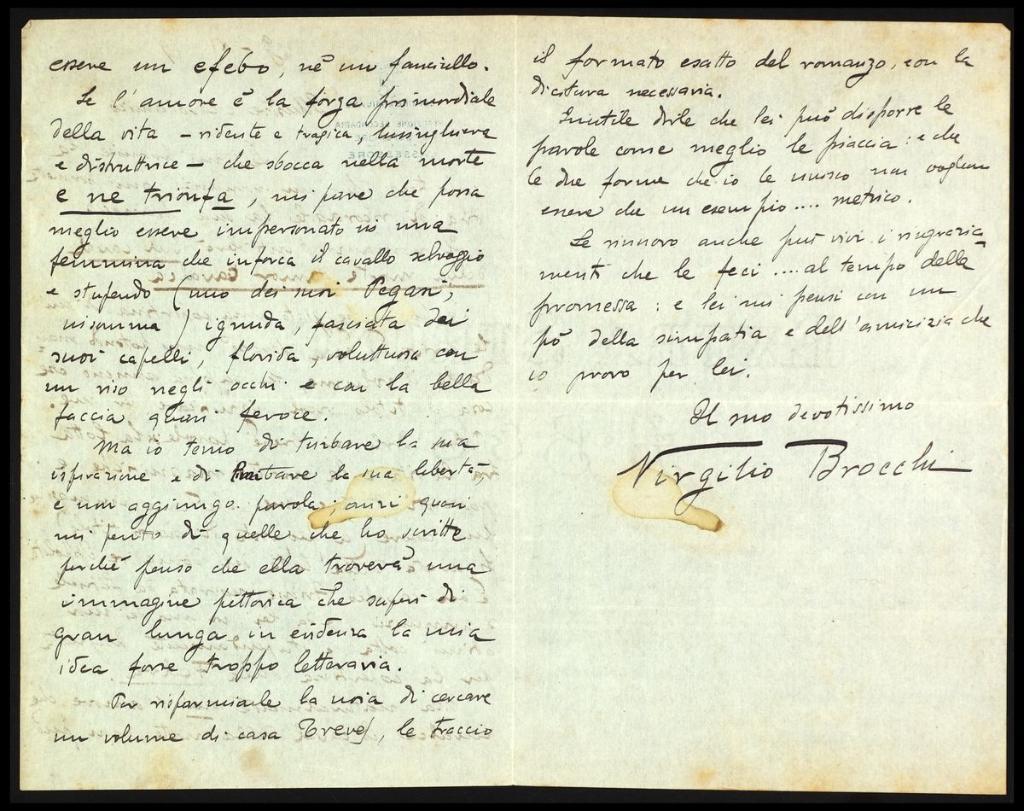 essere un efebo, nè un fanciullo.
Se l'amore è la forza primordiale
della vita – ridente e tragica, lusinghiera
e distruttrice – che sbocca nella morte
e ne trionfa, mi pare che possa
meglio essere impersonato in una
femmina che inforca il cavallo selvaggio
e stupendo (uno dei suoi Pegasi,
insomma) ignuda, fasciata dei
suoi capelli, florida, voluttuosa con
un riso negli occhi e con la bella
faccia quasi feroce.
Ma io temo di turbare la sua
ispirazione e di turbare la sua libertà,
e non aggiungo parola; anzi quasi
mi pento di quelle che ho scritte
perchè penso che ella troverà una
immagine pittorica che superi di
gran lunga in evidenza la mia
idea forse troppo letteraria.
Per risparmiarle la noia di cercare
un volume di casa Treves, le traccio
il formato esatto del romanzo, con la
dicitura necessaria.
Inutile dirle che lei può disporre le
parole come meglio le piaccia: e che
le due forme che io le unisco non vogliono
essere che un esempio .... metrico.
Le rinnovo anche più vivi i ringrazia-
menti che le feci .... al tempo della
promessa: e lei mi pensi con un
pò della simpatia e dell'amicizia che
io provo per lei.
Il suo devotissimo
Virgilio Brocchi